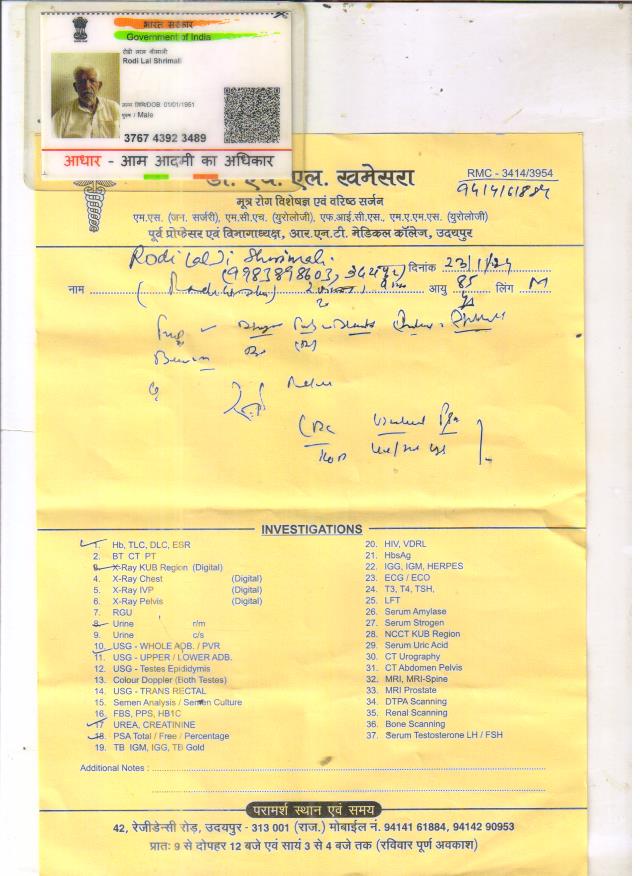 भारत सरकार
Government of India
रोडी लाल श्रीमाली
Rodi Lal Shrimali
जन्म तिथि/DOB: 01/01/1951
पुरुष / Male
3767 4392 3489
आधार - आम आदमी का अधिकार
डॉ. एच. एल. खमेसरा
RMC - 3414/3954
9414161884
मूत्र रोग विशेषज्ञ एवं वरिष्ठ सर्जन
एम.एस. (जन. सर्जरी), एम.सी.एच. (युरोलोजी), एफ.आई.सी.एस., एम.ए.एम.एस. (युरोलोजी)
पूर्व प्रोफेसर एवं विभागाध्यक्ष, आर.एन.टी. मेडिकल कॉलेज, उदयपुर
Rodi Lal Ji Shrimali
(9983898603, उदयपुर) दिनांक 23/1/24
नाम आयु 85 लिंग M
CBC
INVESTIGATIONS
1. Hb, TLC, DLC, ESR
2. BT CT PT
3. X-Ray KUB Region (Digital)
4. X-Ray Chest (Digital)
5. X-Ray IVP (Digital)
6. X-Ray Pelvis (Digital)
7. RGU
8. Urine r/m
9. Urine c/s
10. USG - WHOLE ADB. / PVR
11. USG - UPPER / LOWER ADB.
12. USG - Testes Epididymis
13. Colour Doppler (Both Testes)
14. USG - TRANS RECTAL
15. Semen Analysis / Semen Culture
16. FBS, PPS, HB1C
17. UREA, CREATININE
18. PSA Total / Free / Percentage
19. TB IGM, IGG, TB Gold
20. HIV, VDRL
21. HbsAg
22. IGG, IGM, HERPES
23. ECG / ECO
24. T3, T4, TSH,
25. LFT
26. Serum Amylase
27. Serum Strogen
28. NCCT KUB Region
29. Serum Uric Acid
30. CT Urography
31. CT Abdomen Pelvis
32. MRI, MRI-Spine
33. MRI Prostate
34. DTPA Scanning
35. Renal Scanning
36. Bone Scanning
37. Serum Testosterone LH / FSH
Additional Notes :
परामर्श स्थान एवं समय
42, रेजीडेन्सी रोड़, उदयपुर - 313 001 (राज.) मोबाईल नं. 94141 61884, 94142 90953
प्रातः 9 से दोपहर 12 बजे एवं सायं 3 से 4 बजे तक (रविवार पूर्ण अवकाश)